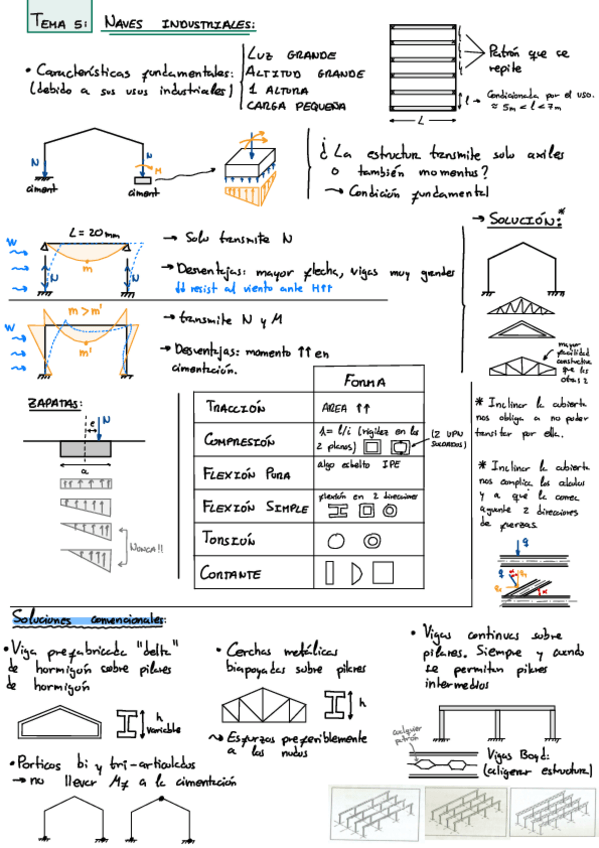 TEMA 5: NAVES INDUSTRIALES:
• Características fundamentales:
(debido a sus usos industriales)
LUZ GRANDE
ALTITUD GRANDE
1 ALTURA
CARGA PEQUEÑA
Patrón que se
repite
l → Condicionada por el uso.
≈ 5m < l < 7m
L
N
N
M
ciment
ciment
¿La estructura transmite solo axiles
o también momentos?
→ Condición fundamental
L = 20 mm
W
N
N
m
→ Solo transmite N
→ Desventajas: mayor flecha, vigas muy grandes
↓↓ resist al viento ante H↑↑
m > m'
W
m'
→ transmite N y M
→ Desventajas: momento ↑↑ en
cimentación.
→ SOLUCIÓN:*
mayor
facilidad
constructiva
que las
otras 2
* Inclinar la cubierta
nos obliga a no poder
transitar por ella.
* Inclinar la cubierta
nos complica los cálculos
y a que la correa
aguante 2 direcciones
de fuerzas.
q
q
ZAPATAS:
e
N
a
¡NUNCA!!
FORMA
TRACCIÓN
AREA ↑↑
COMPRESIÓN
λ = l/i (rigidez en los
2 planos)
(2 UPN
SOLDADOS)
FLEXIÓN PURA
algo esbelto IPE
FLEXIÓN SIMPLE
flexión en 2 direcciones
TORSIÓN
CORTANTE
Soluciones convencionales:
• Viga prefabricada "delta"
de hormigón sobre pilares
de hormigón
h
variable
• Porticos bi y tri-articulados
→ no llevar Mf a la cimentación
• Cerchas metálicas
biapoyadas sobre pilares
h
↝ Esfuerzos preferiblemente
a los nudos
• Vigas continuas sobre
pilares. Siempre y cuando
se permitan pilares
intermedios
cualquier
patrón
Vigas Boyd:
(aligerar estructura)